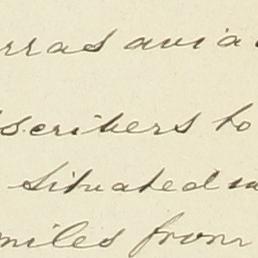 rras avia
scribers to
situated in
miles from